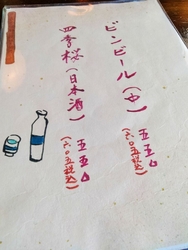 ビンビール(中) 五五〇
(六〇五税込)
四季桜(日本酒) 五五〇
(六〇五税込)